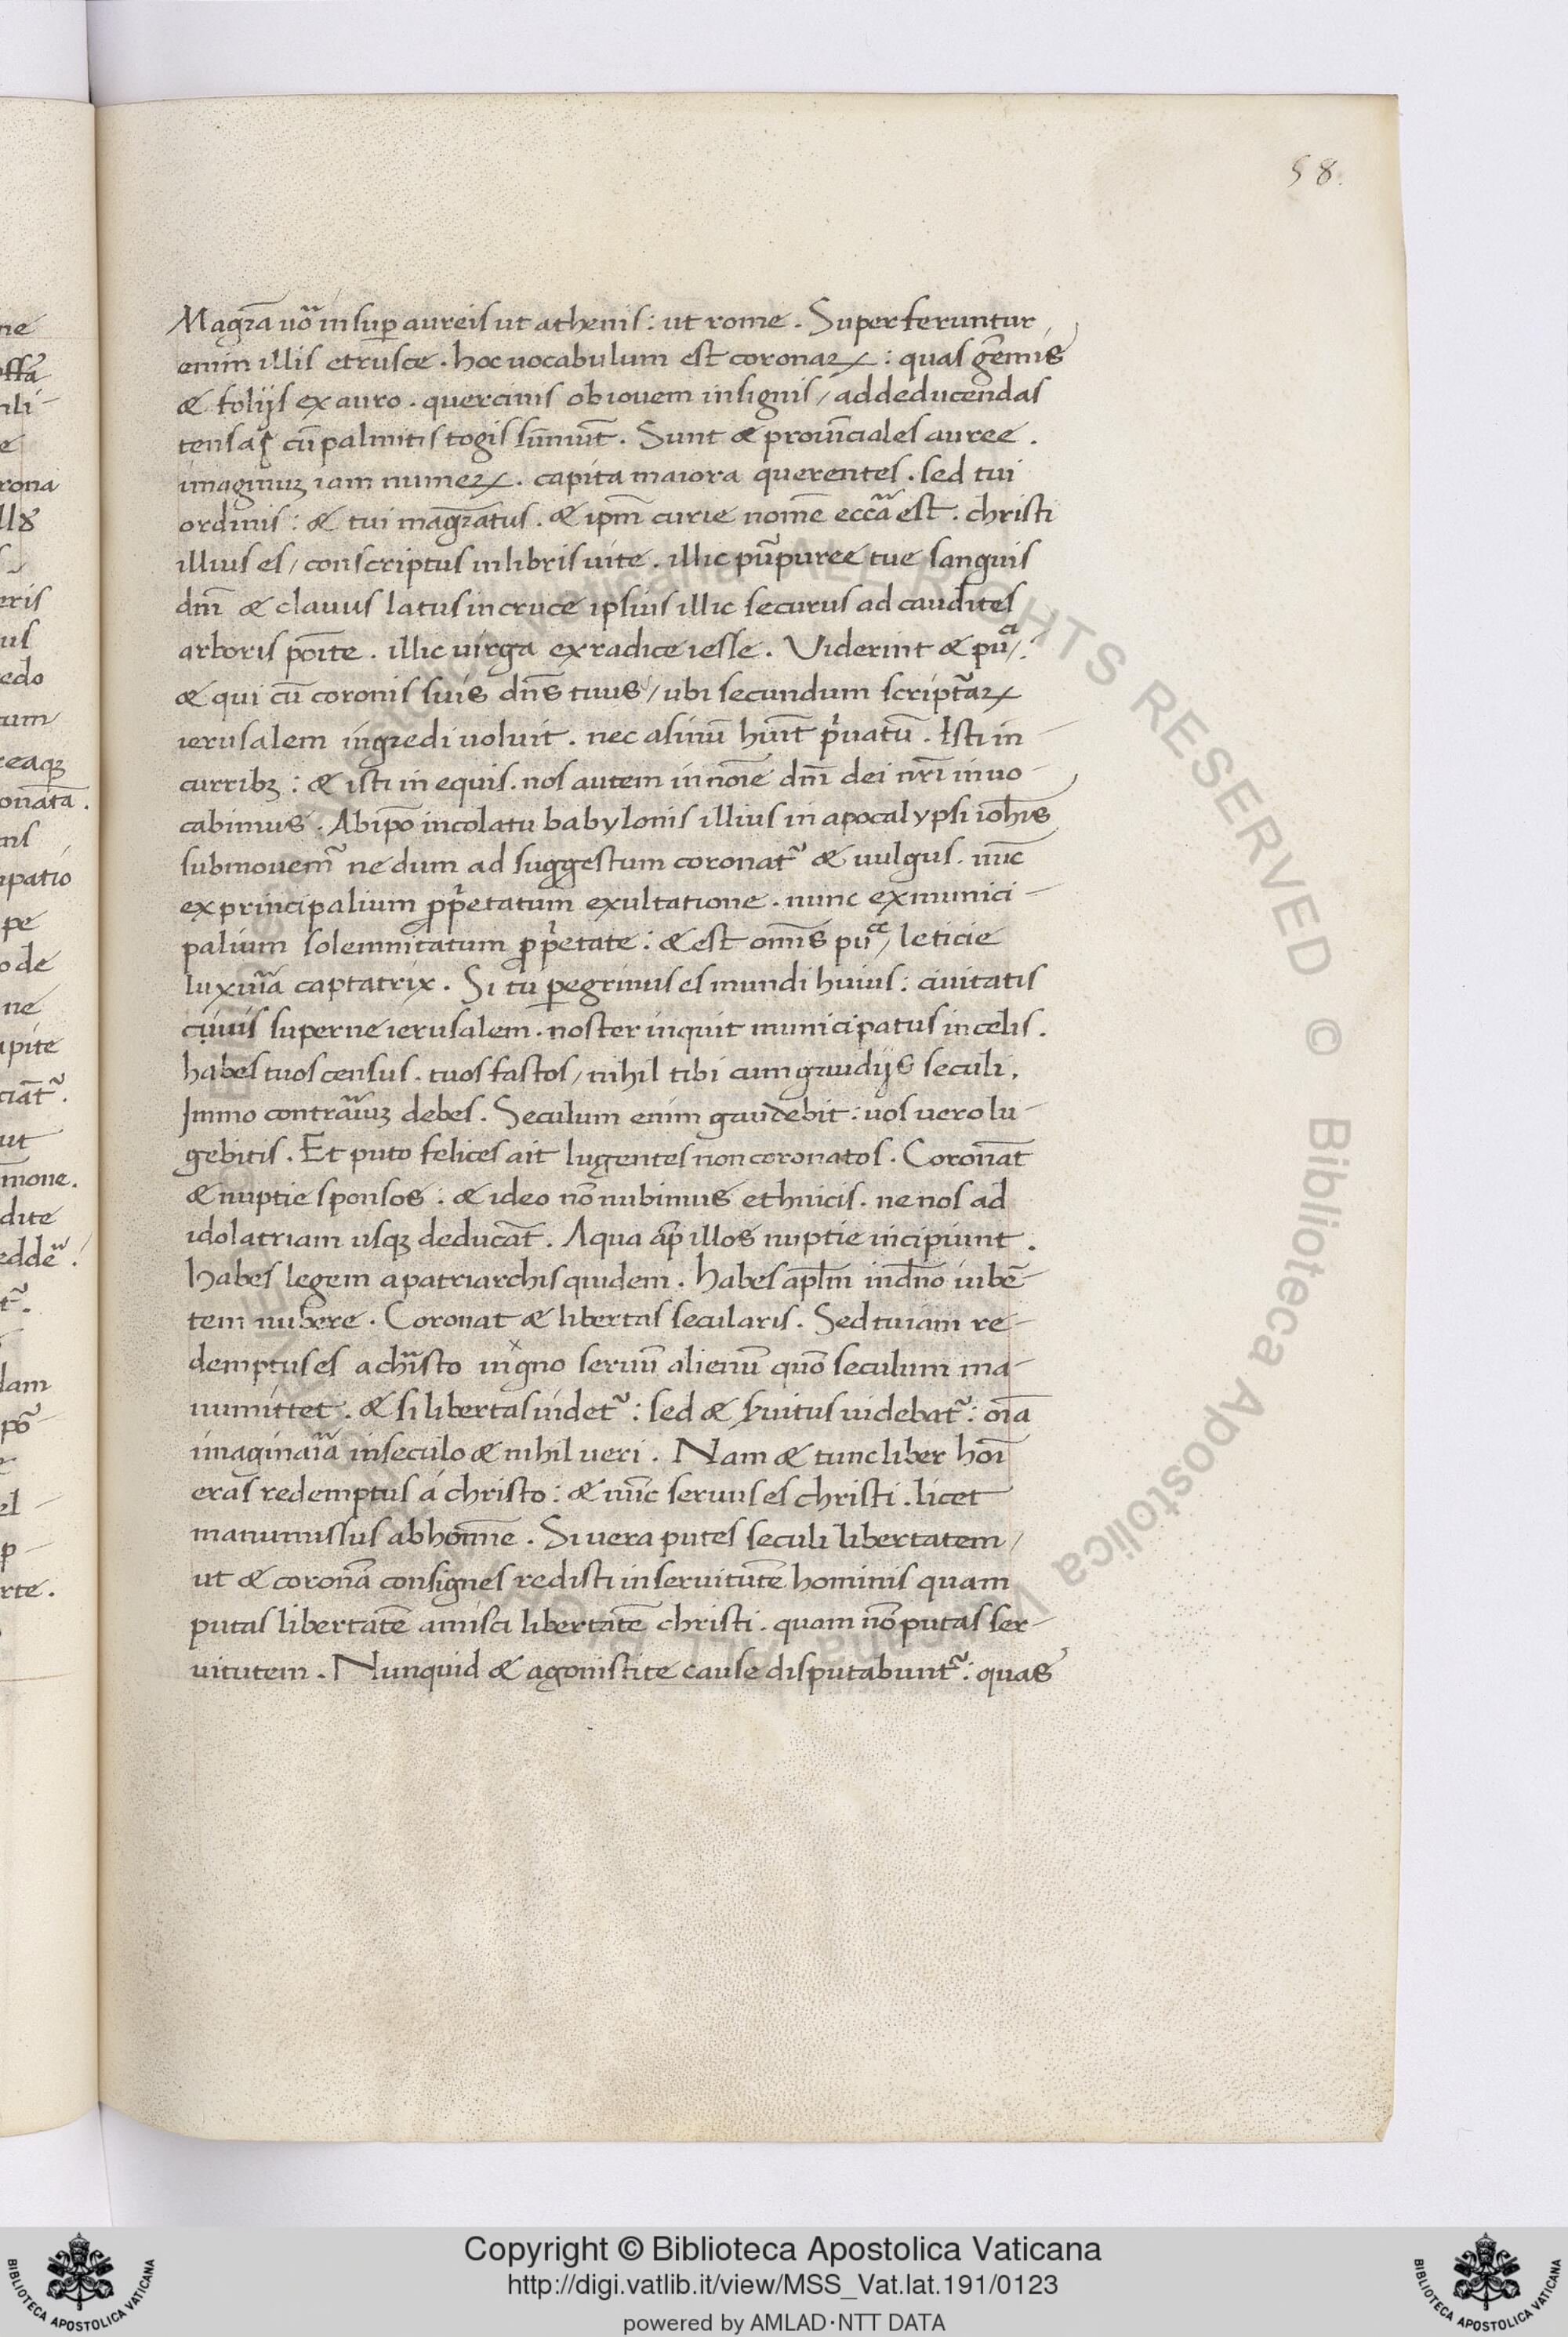 58.
Magr̄a uō insup̱ aureis ut athenis : ut rome . Superferuntur
enim illis etrusce . hoc uocabulum est coronaꝝ : quas gēmis
& folijs ex auro . quercinis ob iouem insignis / ad deducendas
tensas cū palmitis togis sūmūt . Sunt & prouīciales auree .
imaginuꝫ iam numeꝝ . capita maiora querentes . sed tui
ordinis : & tui magr̄atus . & ipm̄ curie nomē ecc̄a est . christi
illius es / conscriptus in libris uite . illic pūpuree tue sanguis
dnī & clauus latus in cruce ipsius illic securus ad caudites
arboris poīte . illic uirga ex radice iesse . Uiderint & pu᷒ci /.
& qui cū coronis suis dn̄s tuus / ubi secundum scriptaꝝ
ierusalem ingredi uoluit . nec asinū hūit pⁱuatū . Isti in
curribꝫ : & isti in equis . nos autem in noīe dnī dei nr̄i inuo
cabimus . Ab ip̄o incolatu babylonis illius in apocalypsi ioh̄is
submouem᷑ ne dum ad suggestum coronat᷑ & uulgus . nūc
ex principalium ꝓpⁱetatum exultatione . nunc ex munici
palium solemnitatum ꝓpⁱetate : & est omīs pu᷒ce / leticie
luxuīa captatrix . Si tu ꝑegrinus es mundi huius : ciuitatis
ciuis superne ierusalem . noster inquit municipatus in celis .
habes tuos census . tuos fastos / nihil tibi cum gaudijs seculi .
Immo contrāiuꝫ debes . Seculum enim gaudebit : uos uero lu
gebitis . Et puto felices ait lugentes non coronatos . Coronāt
& nuptie sponsos : & ideo nō nubimus ethnicis . ne nos ad
idolatriam usqꝫ deducāt . Aqua ap̄ illos nuptie incipiunt .
habes legem a patriarchis quidem . habes apl̄m in dn̄o iubē
tem nubere . Coronat & libertas secularis . Sed tu iam re
demptus es a christo magno seruū alienū quō seculum ma
numittet . & si libertas uidet᷑ : sed & s̄uitus uidebat᷑ : oīa
imaginaīa in seculo & nihil ueri . Nam & tunc liber hoī
eras redemptus á christo : & nūc seruus es christi . licet
manumissus ab homīe . Si uera putes seculi libertatem /
ut & coronā consignes redisti in seruitutē hominis quam
putas libertatē amisti libertatē christi . quam nō putas ser
uitutem . Nunquid & agonistite cause disputabunt᷑ : quas
Copyright © Biblioteca Apostolica Vaticana
http://digi.vatlib.it/view/MSS_Vat.lat.191/0123
powered by AMLAD·NTT DATA